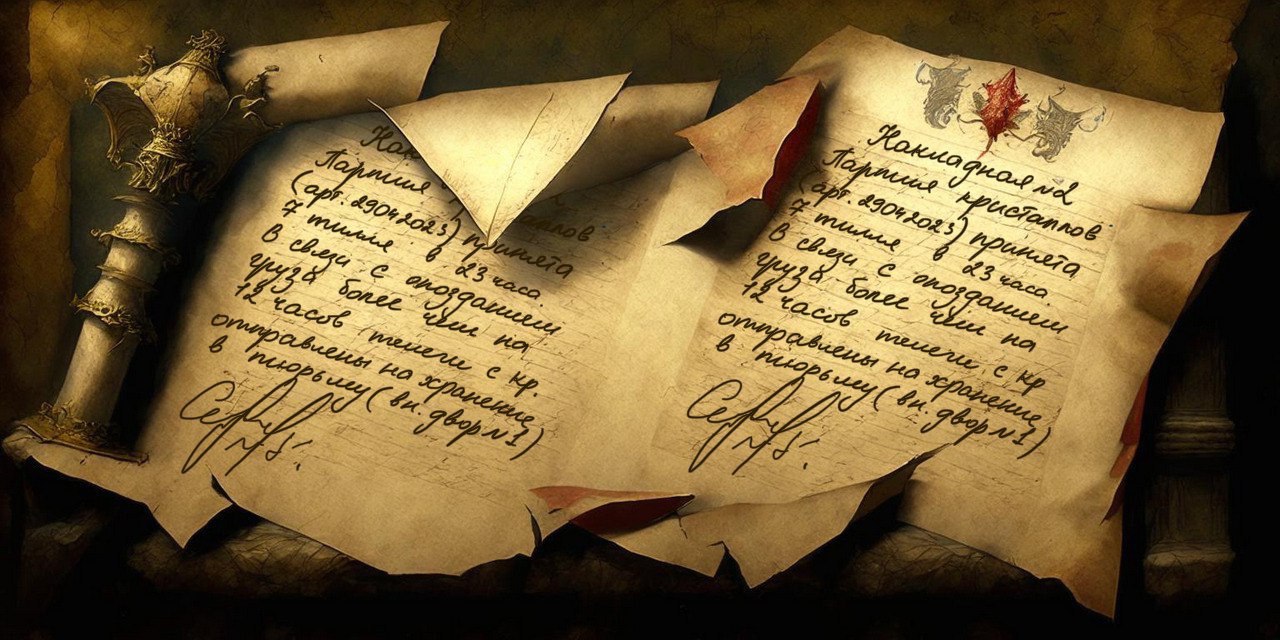 Нак
Партия
(арт. 29042023) принята
7 тилля в 23 часа.
В связи с опозданием
груза более чем на
12 часов телеги с кр.
отправлены на хранение
в тюрьму (вн. двор №1)
Накладная №2
Партия кристаллов
(арт. 29042023) принята
7 тилля в 23 часа.
В связи с опозданием
груза более чем на
12 часов телеги с кр.
отправлены на хранение
в тюрьму (вн. двор №1)